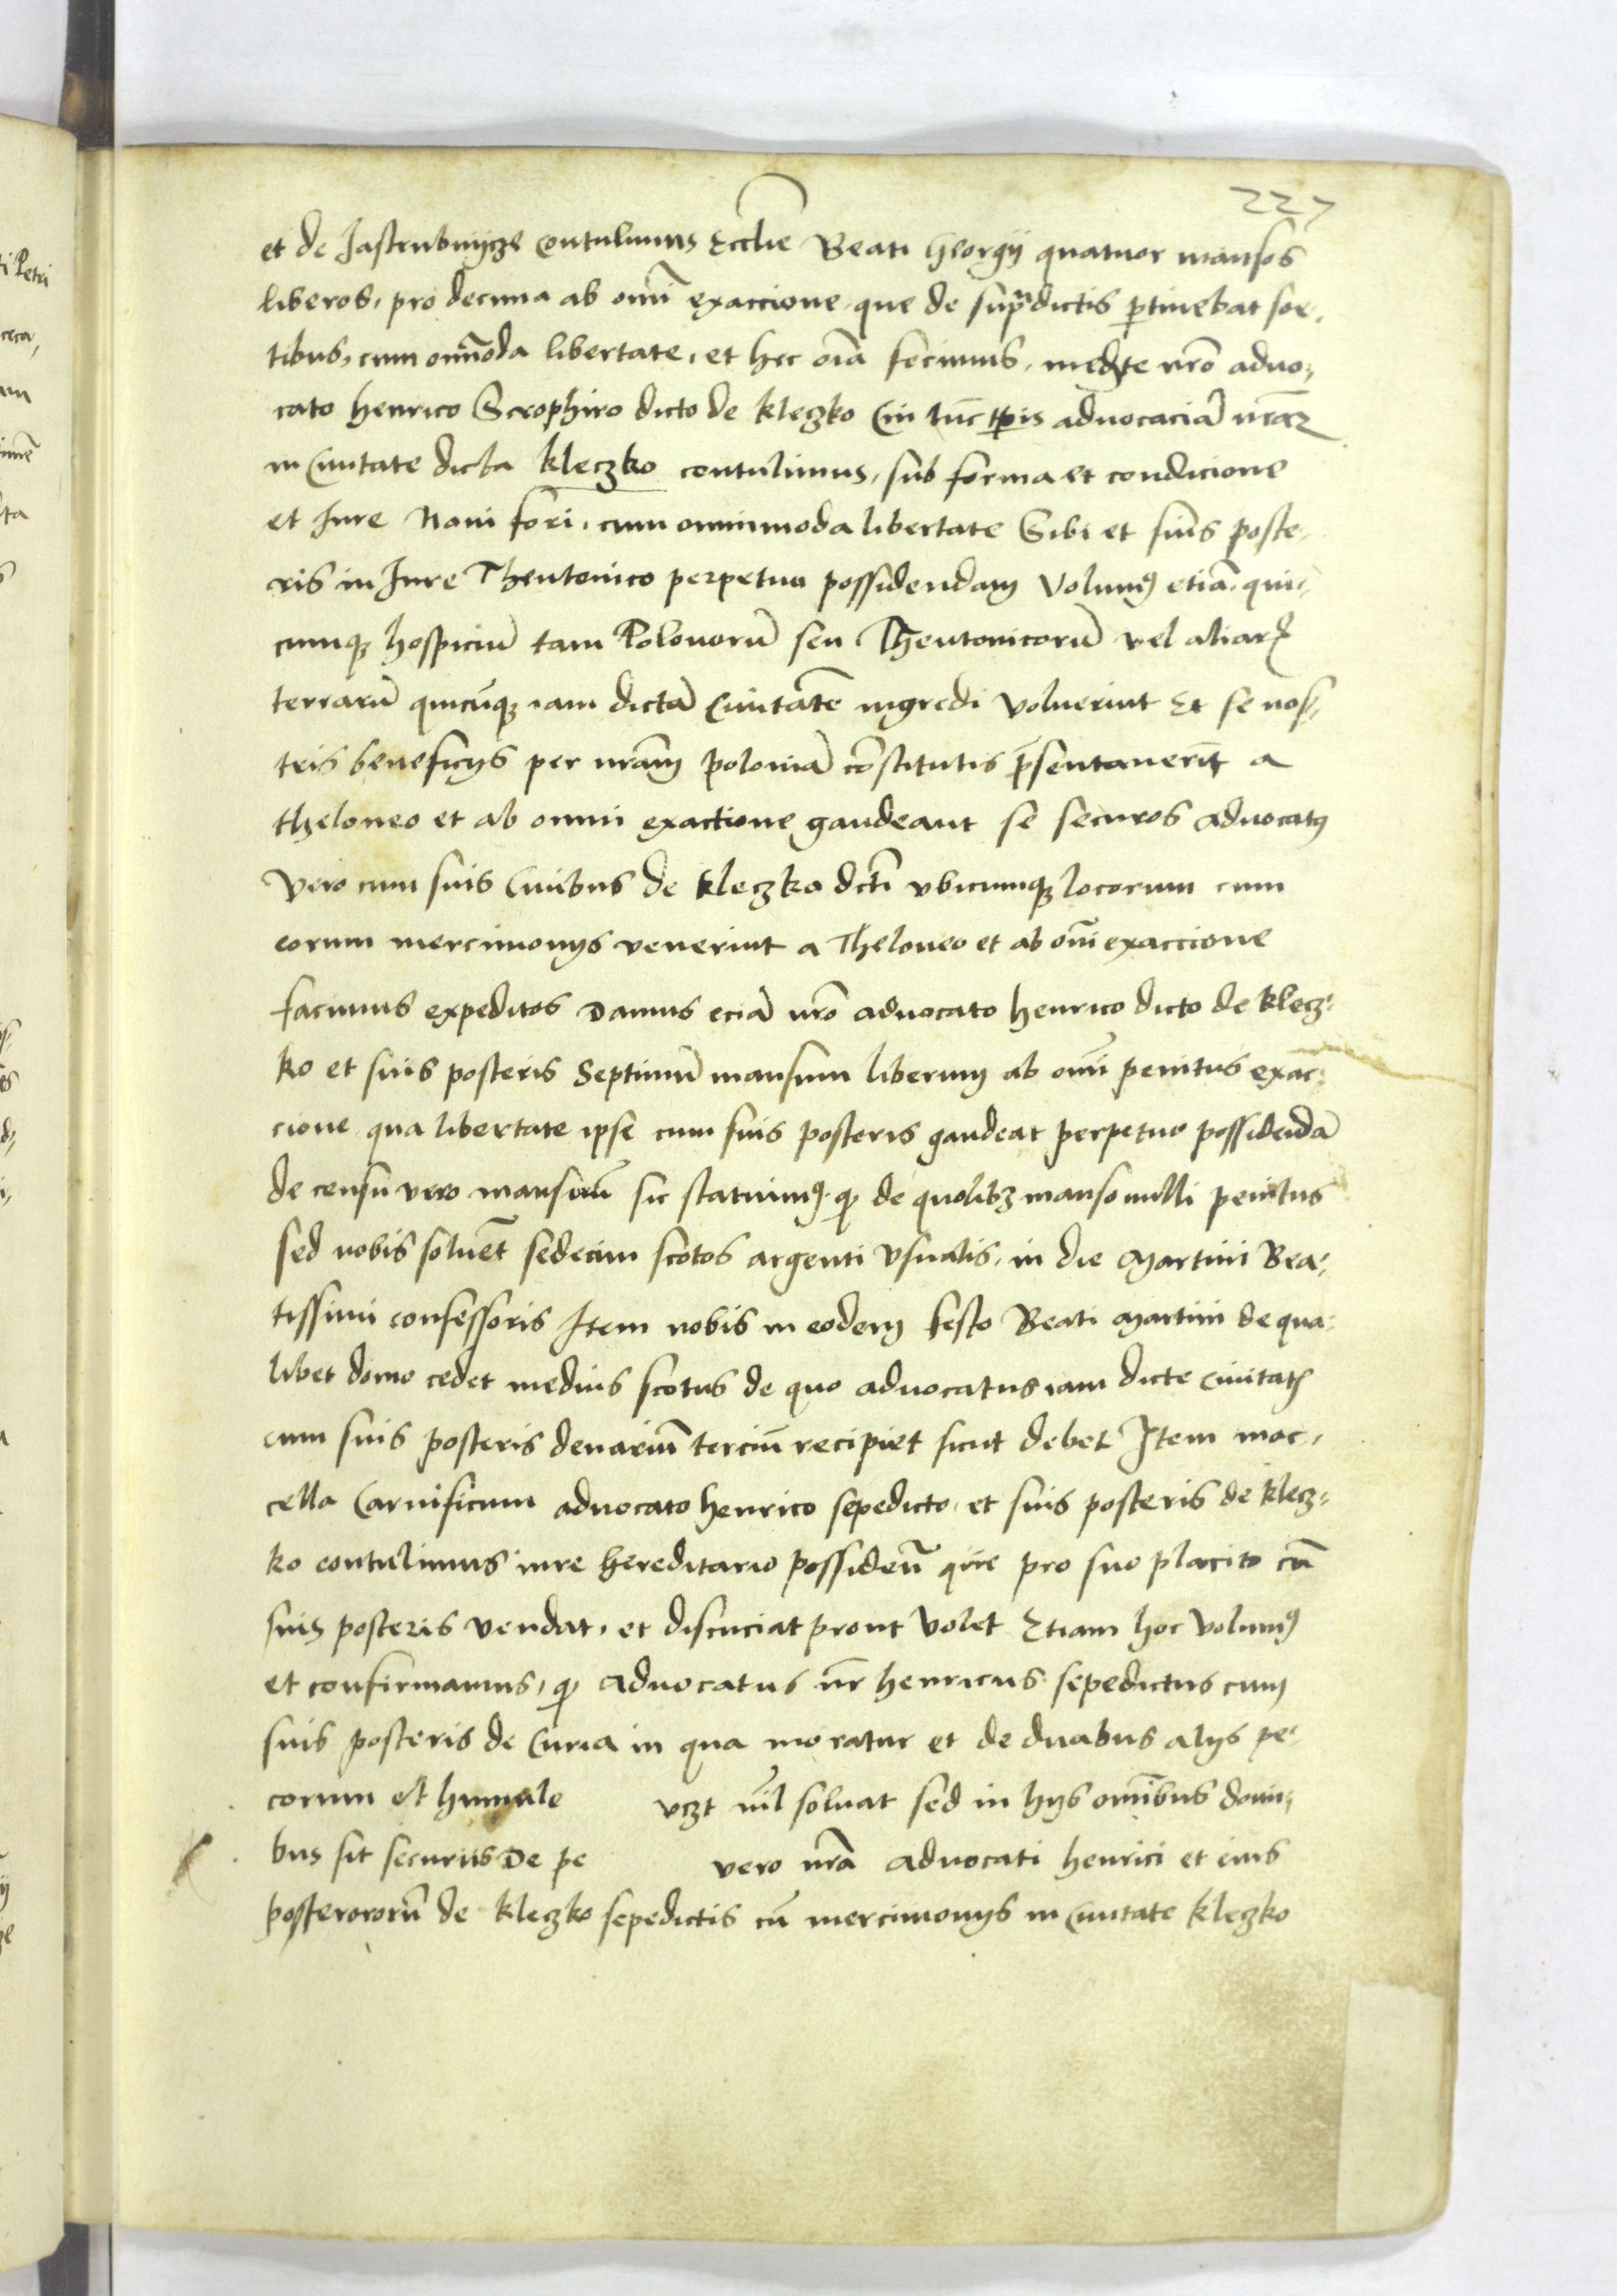 227
et de Jastrubnijcze contulimus Ecclie Beati Georgij quatuor mansos
liberos, pro decima ab omni exaccione que de supradictis ptinebat sor,
tibus, cum omnioda libertate, et hec oia fecimus, mediate nro advo,
cato Henrico Scrophiro dicto de Kleczko Cui tuc tpis advocaciā nram
in Civitate dicta Kleczko contulimus, sub forma et condicione
et Jure Novi fori, cum omnimoda libertate Sibi et suis poste,
ris in Jure Theutonico perpetuo possidendam Volumꝰ etiā qui,
cumqꝫ hospiciū tam Polonorū seu Theutonicorū vel aliarꝝ
terrarū quicūqꝫ iam dictā Civitatē ingredi voluerint Et se nos,
tris beneficijs per nram poloniā cōstitutis psentaverīt a
theloneo et ab omni exactione gaudeant se securos advocatꝰ
Vero cum suis Civibus de Kleczko dcti vbicumqꝫ locorum cum
eorum mercimonijs venerint a Theloneo et ab omi exaccione
facimus expeditos Damus eciā nro advocato Henrico dicto de Klecz,
ko et suis posteris Septimū mansum liberum ab omni penitus exac,
cione qua libertate ipse cum suis posteris gaudeat perpetuo possidendā
de censu vero mansorū sic statuimꝰ ꝙ de quolibꝫ manso nulli penitus
sed nobis solvēt sedecim scotos argenti vsualis, in die Martini Bea,
tissimi confessoris Item nobis in eodem festo Beati Martini de qua,
libet domo cedet medius scotus de quo advocatus iam dicte civitatꝭ
cum suis posteris denariū terciū recipiet sicut debet Item mac,
cella Carnificum advocato Henrico sepedicto, et suis posteris de Klecz,
ko contulimus iure hereditario possidēn que pro suo placito cū
suis posteris vendat, et discuciat prout volet Etiam hoc volumꝰ
et confirmamus, ꝙ advocatus nr Henricus sepedictus cum
suis posteris de Curia in qua moratur et de duabus alijs pe,
corum et humule vczt nil solvat sed in hijs omnibus domi,
bus sit securus De pe vero nra advocati Henrici et eius
posterororū de Kleczko sepedictis cū mercimonijs in Civitate Kleczko